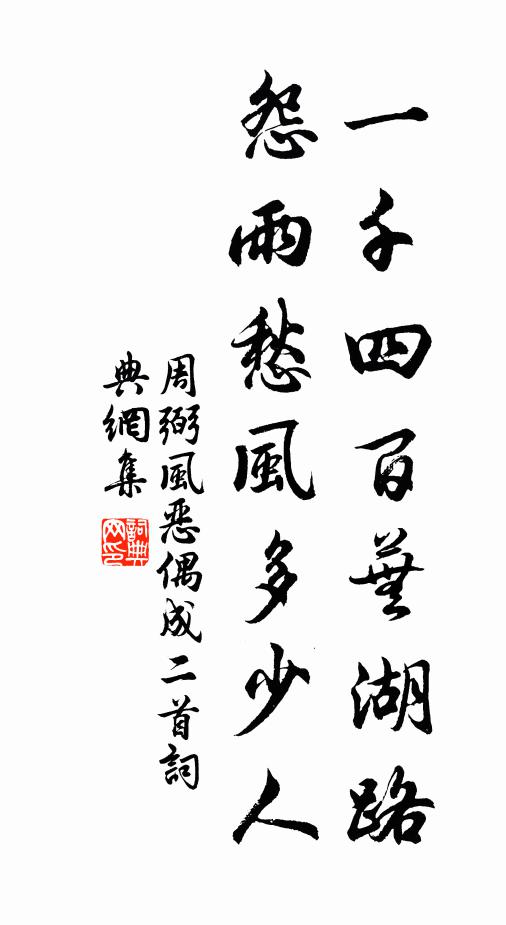 一千四百蕪湖路
怨雨愁風多少人
周弼風惡偶成二首詞
典網集
詞典網印